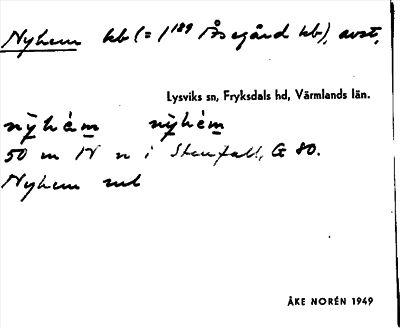 Nyhem hb (= 1¹⁸⁹ Åsegård hb), avst,
Lysviks sn, Fryksdals hd, Värmlands län.
nỳhém nỳhém
50 m N n i Stenfall, G 80.
Nyhem
ÅKE NORÉN 1949